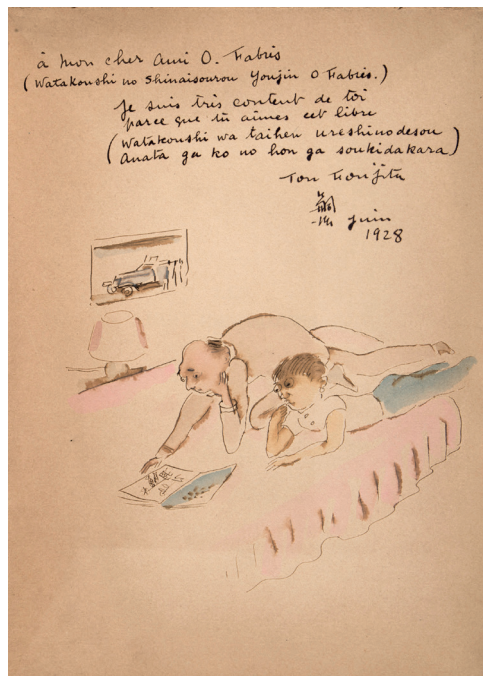 à mon cher Ami O. Fabrès
(Watakoushi no Shinaisourou Youjin O Fabrès.)
Je suis très content de toi
parce que tu aimes cet libre
(Watakoushi wa taihen ureshinodesou
Anata ga ko no hon ga soukidakara)
Ton Foujita
juin
1928